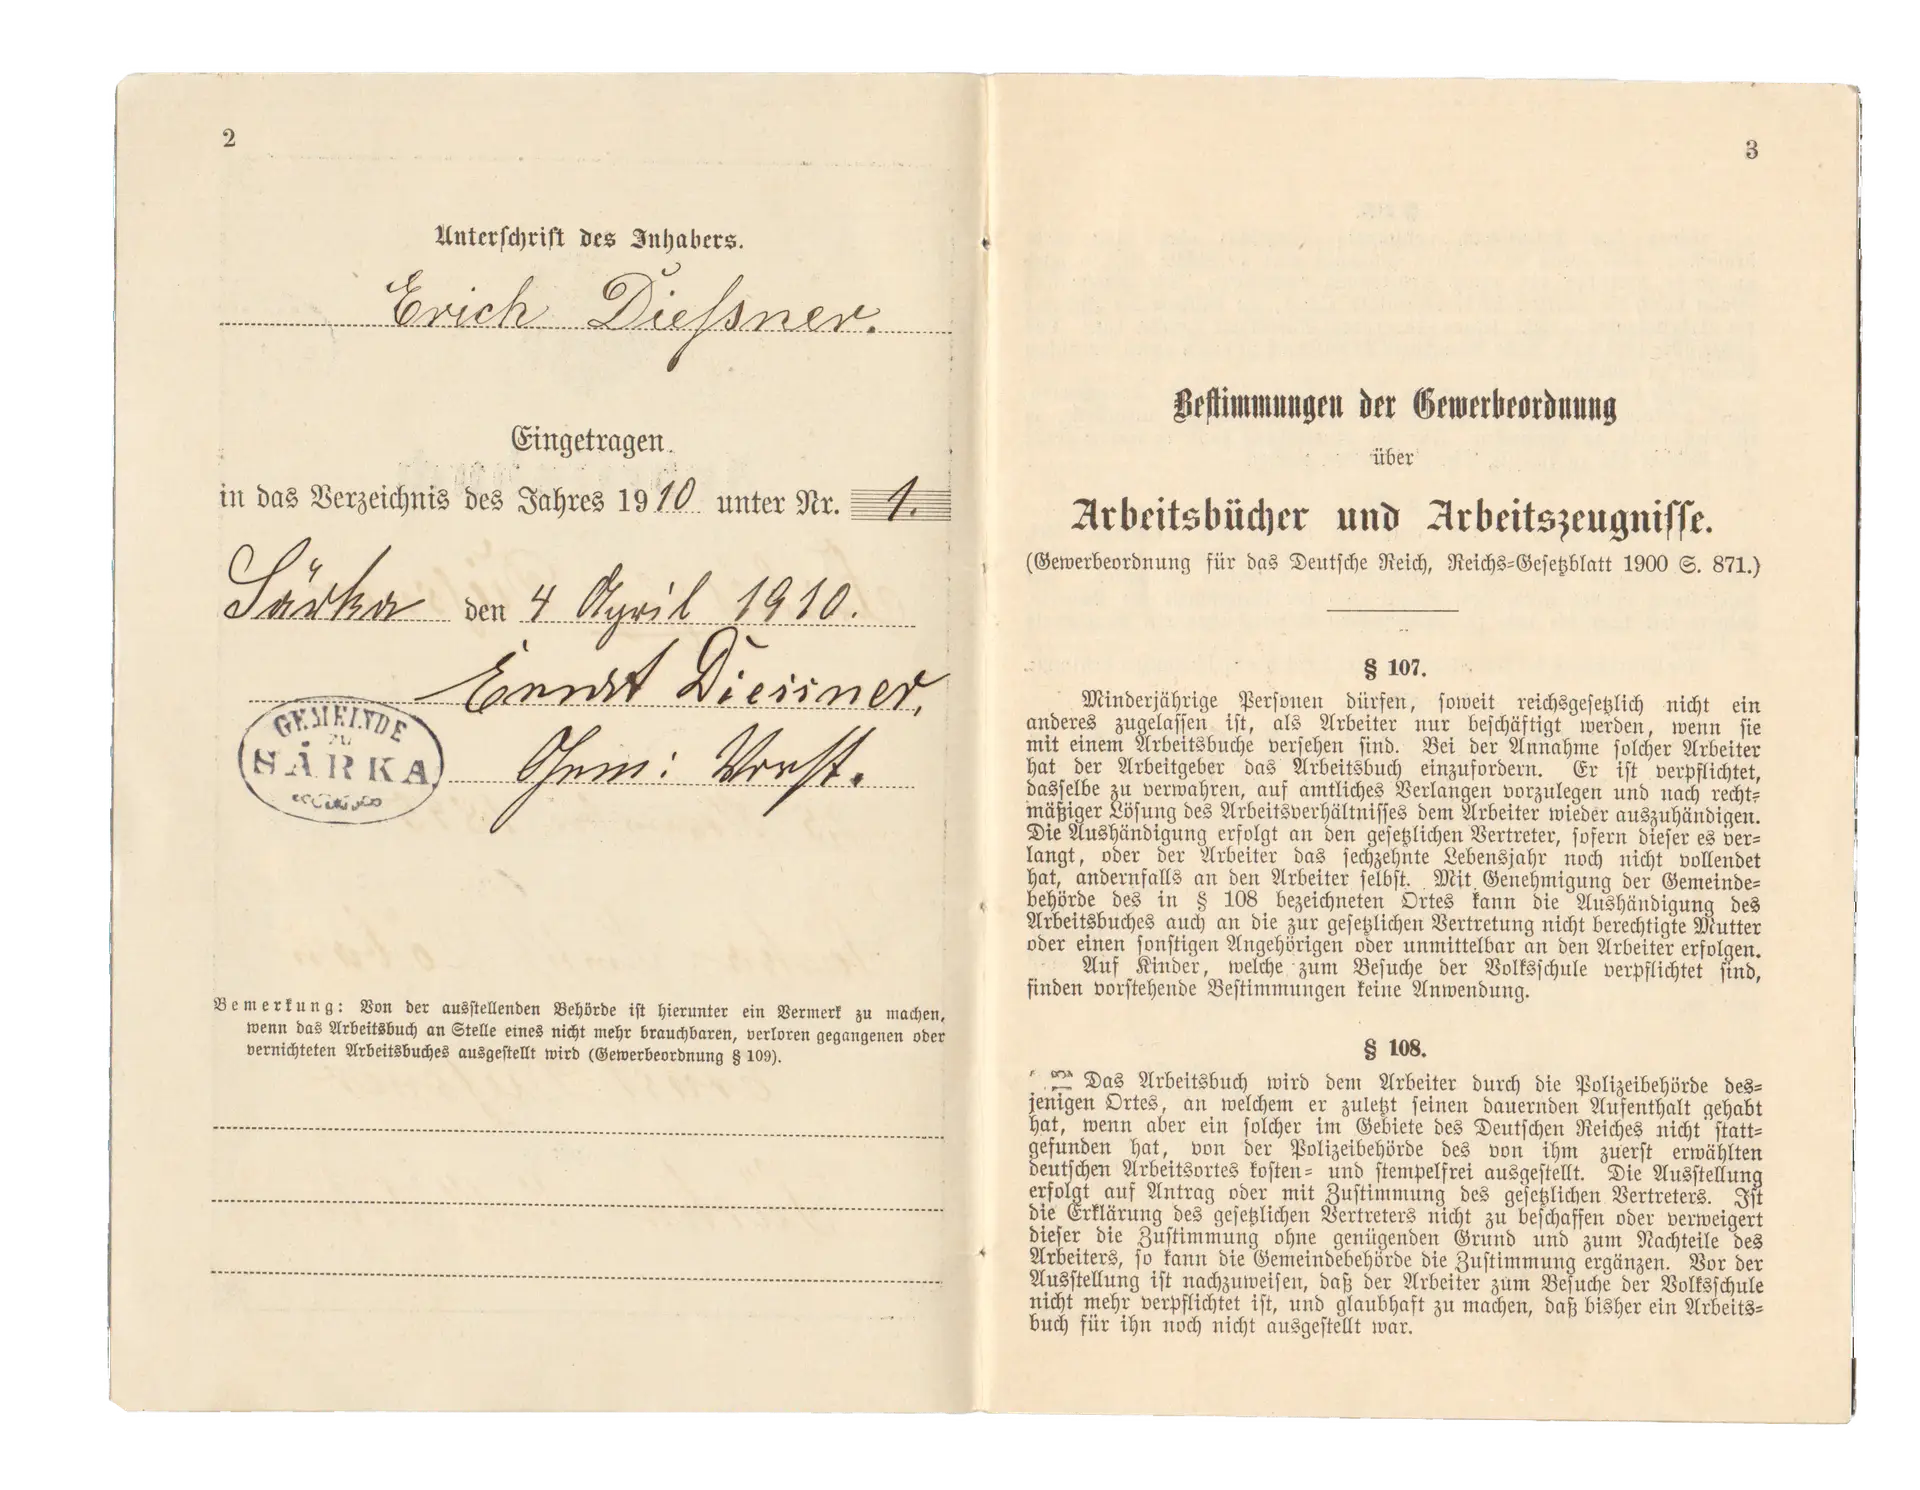 2
Unterschrift des Inhabers.
Erich Diessner.
Eingetragen
in das Verzeichnis des Jahres 1910 unter Nr. 1.
Särka den 4 April 1910.
Ernst Diessner,
Gem: Vorst.
GEMEINDE
ZU
SÄRKA
Bemerkung: Von der ausstellenden Behörde ist hierunter ein Vermerk zu machen,
wenn das Arbeitsbuch an Stelle eines nicht mehr brauchbaren, verloren gegangenen oder
vernichteten Arbeitsbuches ausgestellt wird (Gewerbeordnung § 109).
3
Bestimmungen der Gewerbeordnung
über
Arbeitsbücher und Arbeitszeugnisse.
(Gewerbeordnung für das Deutsche Reich, Reichs-Gesetzblatt 1900 S. 871.)
§ 107.
Minderjährige Personen dürfen, soweit reichsgesetzlich nicht ein
anderes zugelassen ist, als Arbeiter nur beschäftigt werden, wenn sie
mit einem Arbeitsbuche versehen sind. Bei der Annahme solcher Arbeiter
hat der Arbeitgeber das Arbeitsbuch einzufordern. Er ist verpflichtet,
dasselbe zu verwahren, auf amtliches Verlangen vorzulegen und nach recht-
mäßiger Lösung des Arbeitsverhältnisses dem Arbeiter wieder auszuhändigen.
Die Aushändigung erfolgt an den gesetzlichen Vertreter, sofern dieser es ver-
langt, oder der Arbeiter das sechzehnte Lebensjahr noch nicht vollendet
hat, andernfalls an den Arbeiter selbst. Mit Genehmigung der Gemeinde-
behörde des in § 108 bezeichneten Ortes kann die Aushändigung des
Arbeitsbuches auch an die zur gesetzlichen Vertretung nicht berechtigte Mutter
oder einen sonstigen Angehörigen oder unmittelbar an den Arbeiter erfolgen.
Auf Kinder, welche zum Besuche der Volksschule verpflichtet sind,
finden vorstehende Bestimmungen keine Anwendung.
§ 108.
Das Arbeitsbuch wird dem Arbeiter durch die Polizeibehörde des-
jenigen Ortes, an welchem er zuletzt seinen dauernden Aufenthalt gehabt
hat, wenn aber ein solcher im Gebiete des Deutschen Reiches nicht statt-
gefunden hat, von der Polizeibehörde des von ihm zuerst erwählten
deutschen Arbeitsortes kosten- und stempelfrei ausgestellt. Die Ausstellung
erfolgt auf Antrag oder mit Zustimmung des gesetzlichen Vertreters. Ist
die Erklärung des gesetzlichen Vertreters nicht zu beschaffen oder verweigert
dieser die Zustimmung ohne genügenden Grund und zum Nachteile des
Arbeiters, so kann die Gemeindebehörde die Zustimmung ergänzen. Vor der
Ausstellung ist nachzuweisen, daß der Arbeiter zum Besuche der Volksschule
nicht mehr verpflichtet ist, und glaubhaft zu machen, daß bisher ein Arbeits-
buch für ihn noch nicht ausgestellt war.